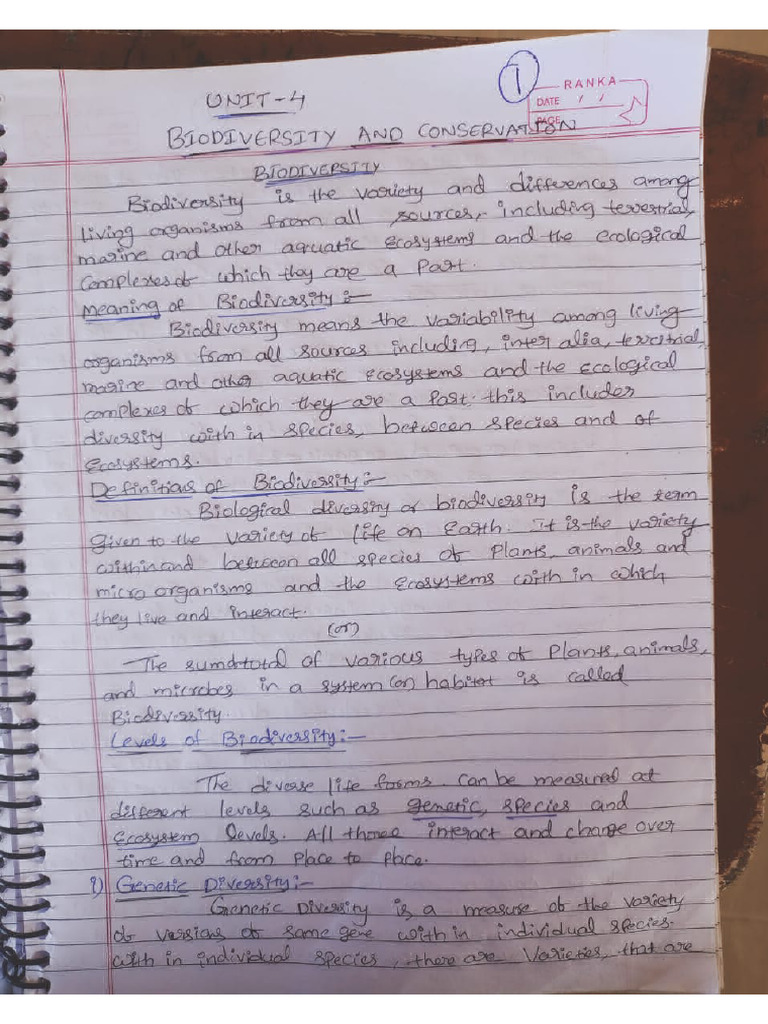 1
RANKA
DATE / /
PAGE
UNIT-4
BIODIVERSITY AND CONSERVATION
BIODIVERSITY
Biodiversity is the variety and differences among
living organisms from all sources, including terrestrial,
marine and other aquatic ecosystems and the ecological
complexes of which they are a Part.
Meaning of Biodiversity :-
Biodiversity means the variability among living
organisms from all sources including, inter alia, terrestrial,
marine and other aquatic ecosystems and the ecological
complexes of which they are a Part. this includes
diversity with in species, between species and of
ecosystems.
Definitions of Biodiversity :-
Biological diversity or biodiversity is the term
given to the variety of life on Earth. It is the variety
within and between all species of Plants, animals and
micro organisms and the Ecosystems with in which
they live and interact.
(or)
The sumdtotal of various types of Plants, animals,
and microbes in a system (or) habitat is called
Biodiversity.
Levels of Biodiversity:-
The diverse life forms can be measured at
different levels such as genetic, species and
Ecosystem levels. All three interact and change over
time and from Place to Place.
i) Genetic Diversity:-
Genetic Diversity is a measure of the variety
of versions of same gene with in individual species.
with in individual species, there are Varieties, that are